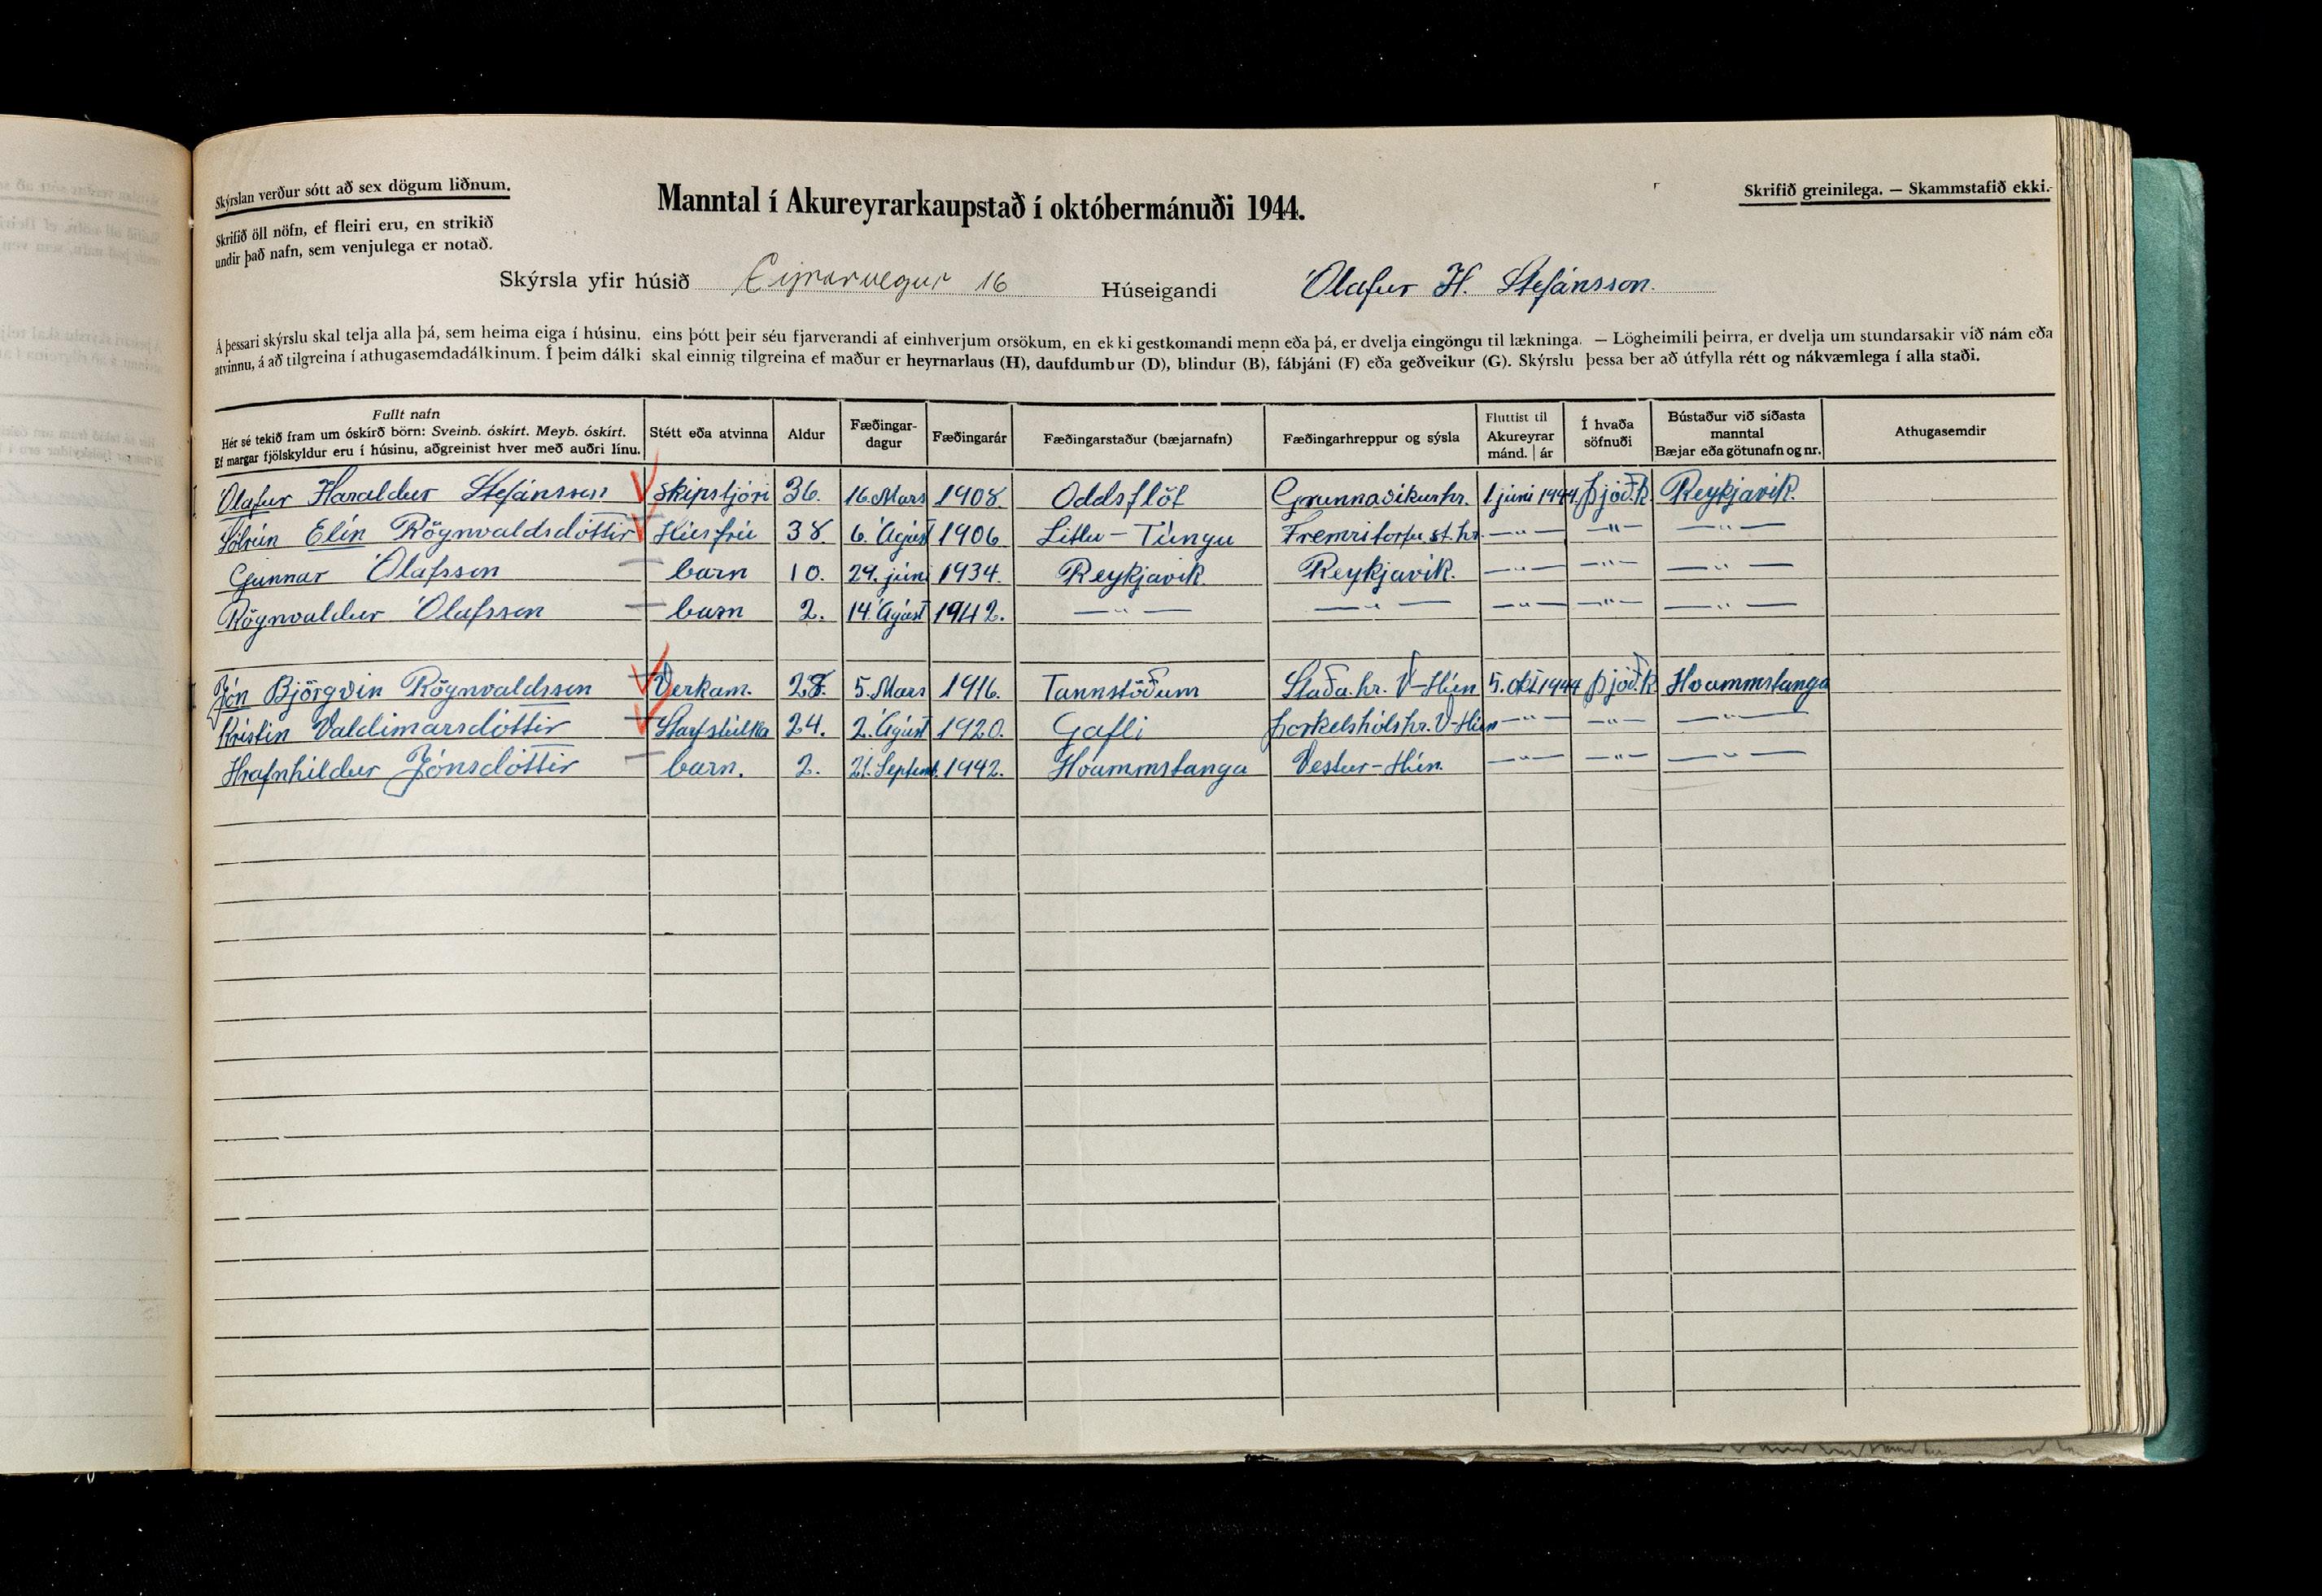 Skýrslan verður sótt að sex dögum liðnum.
Skrifið öll nöfn, ef fleiri eru, en strikið
undir það nafn, sem venjulega er notað.
Manntal í Akureyrarkaupstað í októbermánuði 1944.
Skrifið greinilega. — Skammstafið ekki.
Skýrsla yfir húsið Eyrarvegur 16 Húseigandi Ólafur H. Stefánsson.
Á þessari skýrslu skal telja alla þá, sem heima eiga í húsinu, eins þótt þeir séu fjarverandi af einhverjum orsökum, en ekki gestkomandi menn eða þá, er dvelja eingöngu til lækninga. — Lögheimili þeirra, er dvelja um stundarsakir við nám eða
atvinnu, á að tilgreina í athugasemdadálkinum. Í þeim dálki skal einnig tilgreina ef maður er heyrnarlaus (H), daufdumbur (D), blindur (B), fábjáni (F) eða geðveikur (G). Skýrslu þessa ber að útfylla rétt og nákvæmlega í alla staði.
Fullt nafn
Hér sé tekið fram um óskírð börn: Sveinb. óskírt. Meyb. óskírt.
Ef margar fjölskyldur eru í húsinu, aðgreinist hver með auðri línu.
Stétt eða atvinna
Aldur
Fæðingar-
dagur
Fæðingarár
Fæðingarstaður (bæjarnafn)
Fæðingarhreppur og sýsla
Fluttist til
Akureyrar
mánd. | ár
Í hvaða
söfnuði
Bústaður við síðasta
manntal
Bæjar eða götunafn og nr.
Athugasemdir
Ólafur Haraldur Stefánsson Skipstjóri 36. 16. Mars 1908. Oddsflöt Grunnavíkurhr. 1. júni 1944. þjóð.k Reykjavík.
Sólrún Elín Rögnvaldsdóttir Húsfrú 38. 6. Ágúst 1906 Litlu-Túngu Fremritorfu.st.hr. —"— —"— —"—
Gunnar Ólafsson barn 10. 29. júni 1934. Reykjavík Reykjavík. —"— —"— —"—
Rögnvaldur Ólafsson barn 2. 14. Ágúst 1942. —"— —"— —"— —"— —"—
Jón Björgvin Rögnvaldsson Verkam. 28. 5. Mars 1916. Tannstöðum Staða.hr. V-Hún 5. Okt. 1944 þjóð.k Hvammstanga
Kristín Valdimarsdóttir Starfstúlka 24. 2. Ágúst 1920. Gafli Þorkelshólshr. V-Hún —"— —"— —"—
Hrafnhildur Jónsdóttir barn. 2. 21. Septemb. 1942. Hvammstanga Vestur-Hún. —"— —"— —"—